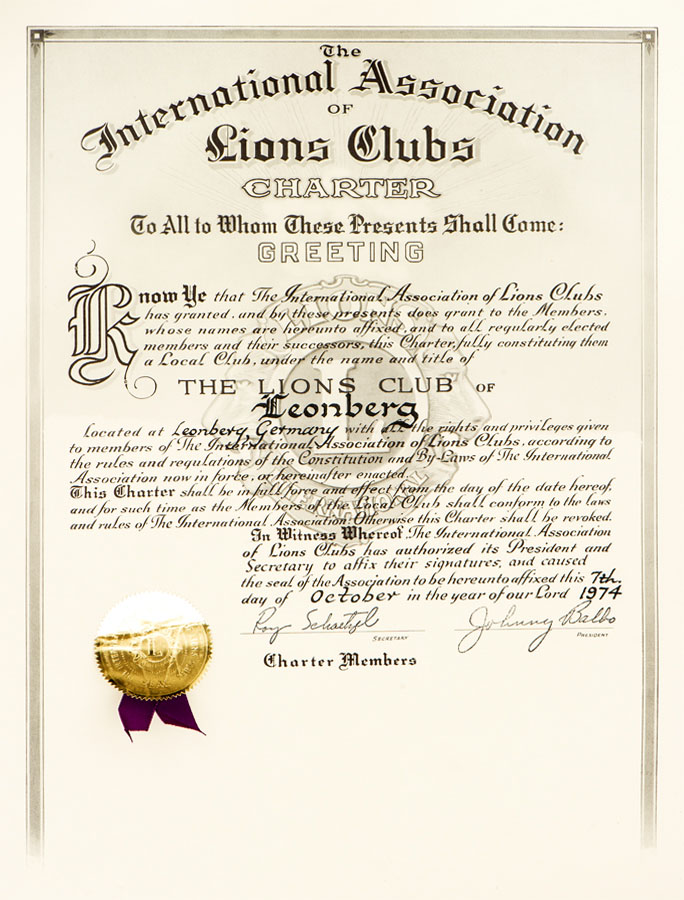 The
International Association
OF
Lions Clubs
CHARTER
To All to Whom These Presents Shall Come:
GREETING
Know Ye that The International Association of Lions Clubs
has granted, and by these presents does grant to the Members,
whose names are hereunto affixed, and to all regularly elected
members and their successors, this Charter, fully constituting them
a Local Club, under the name and title of
THE LIONS CLUB OF
Leonberg
Located at Leonberg Germany with all the rights and privileges given
to members of The International Association of Lions Clubs, according to
the rules and regulations of the Constitution and By-Laws of The International
Association now in force, or hereinafter enacted.
This Charter shall be in full force and effect from the day of the date hereof,
and for such time as the Members of the Local Club shall conform to the laws
and rules of The International Association. Otherwise this Charter shall be revoked.
In Witness Whereof The International Association
of Lions Clubs has authorized its President and
Secretary to affix their signatures, and caused
the seal of the Association to be hereunto affixed this 7th.
day of October in the year of our Lord 1974
Roy Schaetzel Johnny Balbo
SECRETARY PRESIDENT
Charter Members